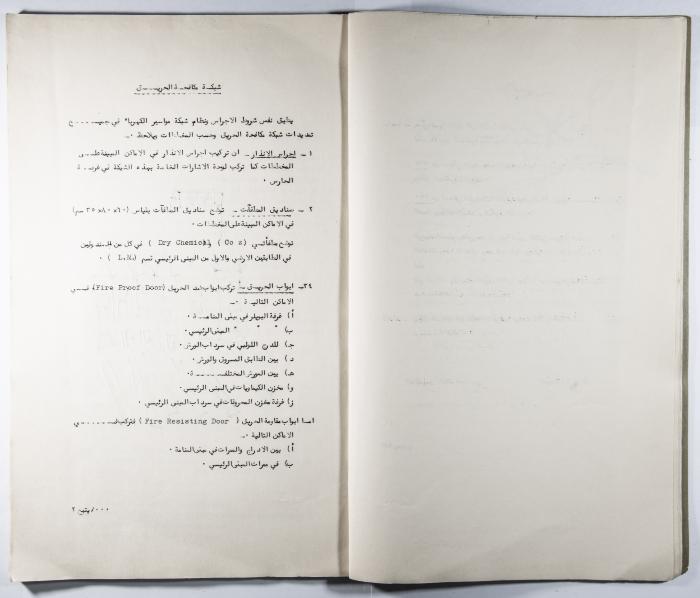 شبكة مكافحة الحريـــــق
يطبق نفس شروط الاجراس ونظام شبكة مواسير الكهرباء في جميـــــع
تمديدات شبكة مكافحة الحريق وحسب المخططات ويلاحظ ٠ـ
١ ـ اجراس الانذار ـ ان تركيب اجراس الانذار في الاماكن المبينة علـــى
المخططات كما تركب لوحة الاشارات الخاصة بهذه الشبكة في غرفـــة
الحارس ٠
٢ ـ صناديق الطافآت ـ توضع صناديق الطافآت بقياس (٦٠×٨٠×٢٥ سم)
في الاماكن المبينة على المخططات ٠
توضع طافأتي (Co 2) و(Dry Chemic) في كل من
في الطابقين الارضي والاول من المبنى الرئيسي قسم (L.M.) ٠
٣ـ ابواب الحريـــق ـ تركب ابواب ضد الحريق (Fire Proof Door) فـــي
الاماكن التاليـة ٠ـ
أ) غرفة البويلر في مبنى المنامـــة ٠
ب) " " " المبنى الرئيسي ٠
جـ) للدرج اللولبي في سرداب الورش ٠
د) بين الطابق المسروق والورش ٠
هـ) بين الورش المختلفـــــة ٠
و) مخزن الكيماويات في المبنى الرئيسي ٠
ز) غرفة مخزن المحروقات في سرداب المبنى الرئيسي ٠
اما ابواب مقاومة الحريق (Fire Resisting Door) فتركب فـــــي
الاماكن التالية ٠ـ
أ) بين الادراج والممرات في مبنى المنامة ٠
ب) في ممرات المبنى الرئيسي ٠
٠٠٠/يتبع ٢